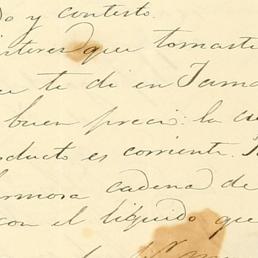 do y contesto.
interes que tomaste
te di en Jama
buen precio: la cu
oducto es corriente. 
ermosa cadena de
con el líquido que